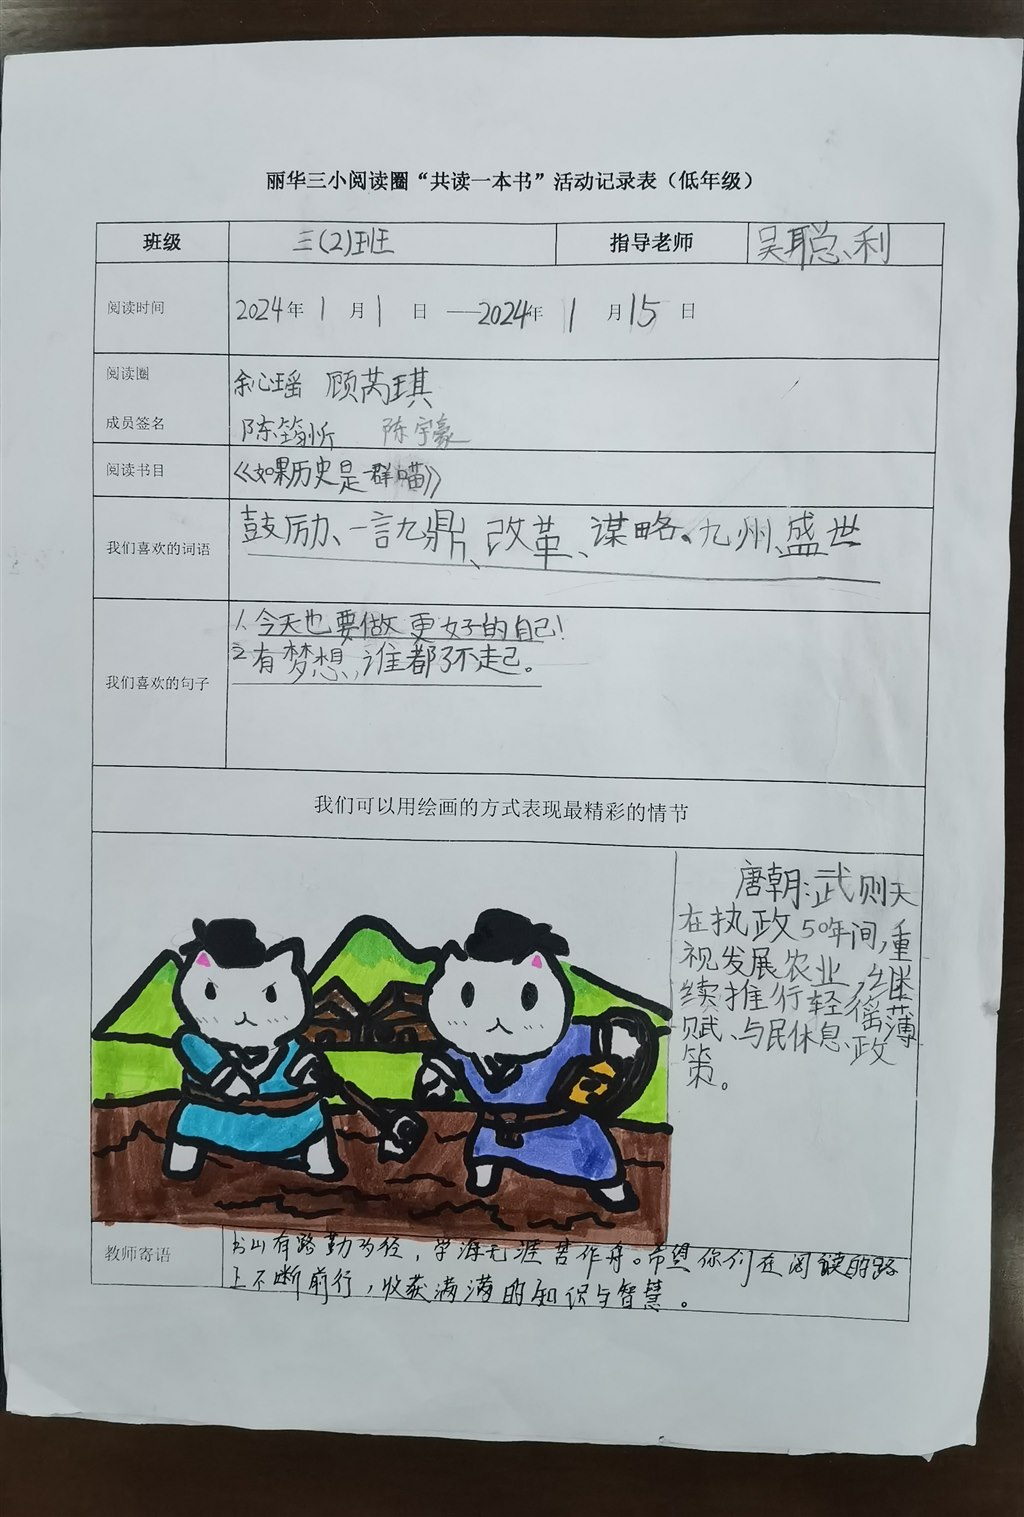 丽华三小阅读圈“共读一本书”活动记录表（低年级）
班级 三(2)班 指导老师 吴聪利
阅读时间 2024年 1 月 1 日 —2024年 1 月 15 日
阅读圈 余心瑶 顾芮琪
成员签名 陈筠忻 陈宇豪
阅读书目 《如果历史是一群喵》
我们喜欢的词语 鼓励、一言九鼎、改革、谋略、九州、盛世
我们喜欢的句子
1.今天也要做更好的自己!
2.有梦想,谁都了不起。
我们可以用绘画的方式表现最精彩的情节
唐朝:武则天
在执政50年间,重
视发展农业,继
续推行轻徭薄
赋、与民休息政
策。
教师寄语
书山有路勤为径，学海无涯苦作舟。希望你们在阅读的路
上不断前行，收获满满的知识与智慧。